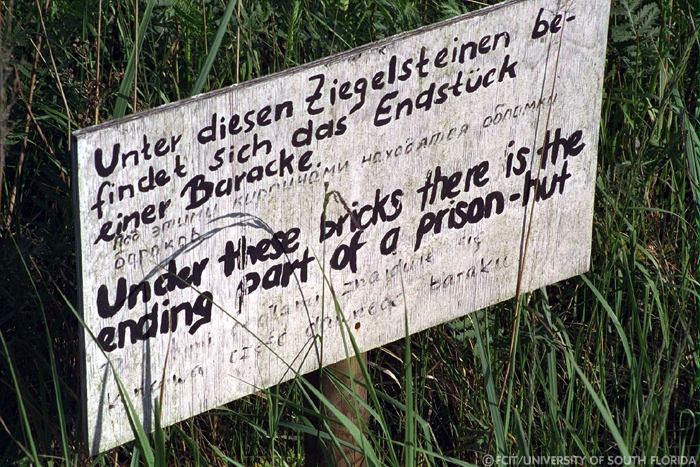 Unter diesen Ziegelsteinen be-
findet sich das Endstück
einer Baracke.
Под этими кирпичами находятся обломки
барака
Under these bricks there is the
ending part of a prison-hut
znajduje się
część baraku
© FCIT/UNIVERSITY OF SOUTH FLORIDA